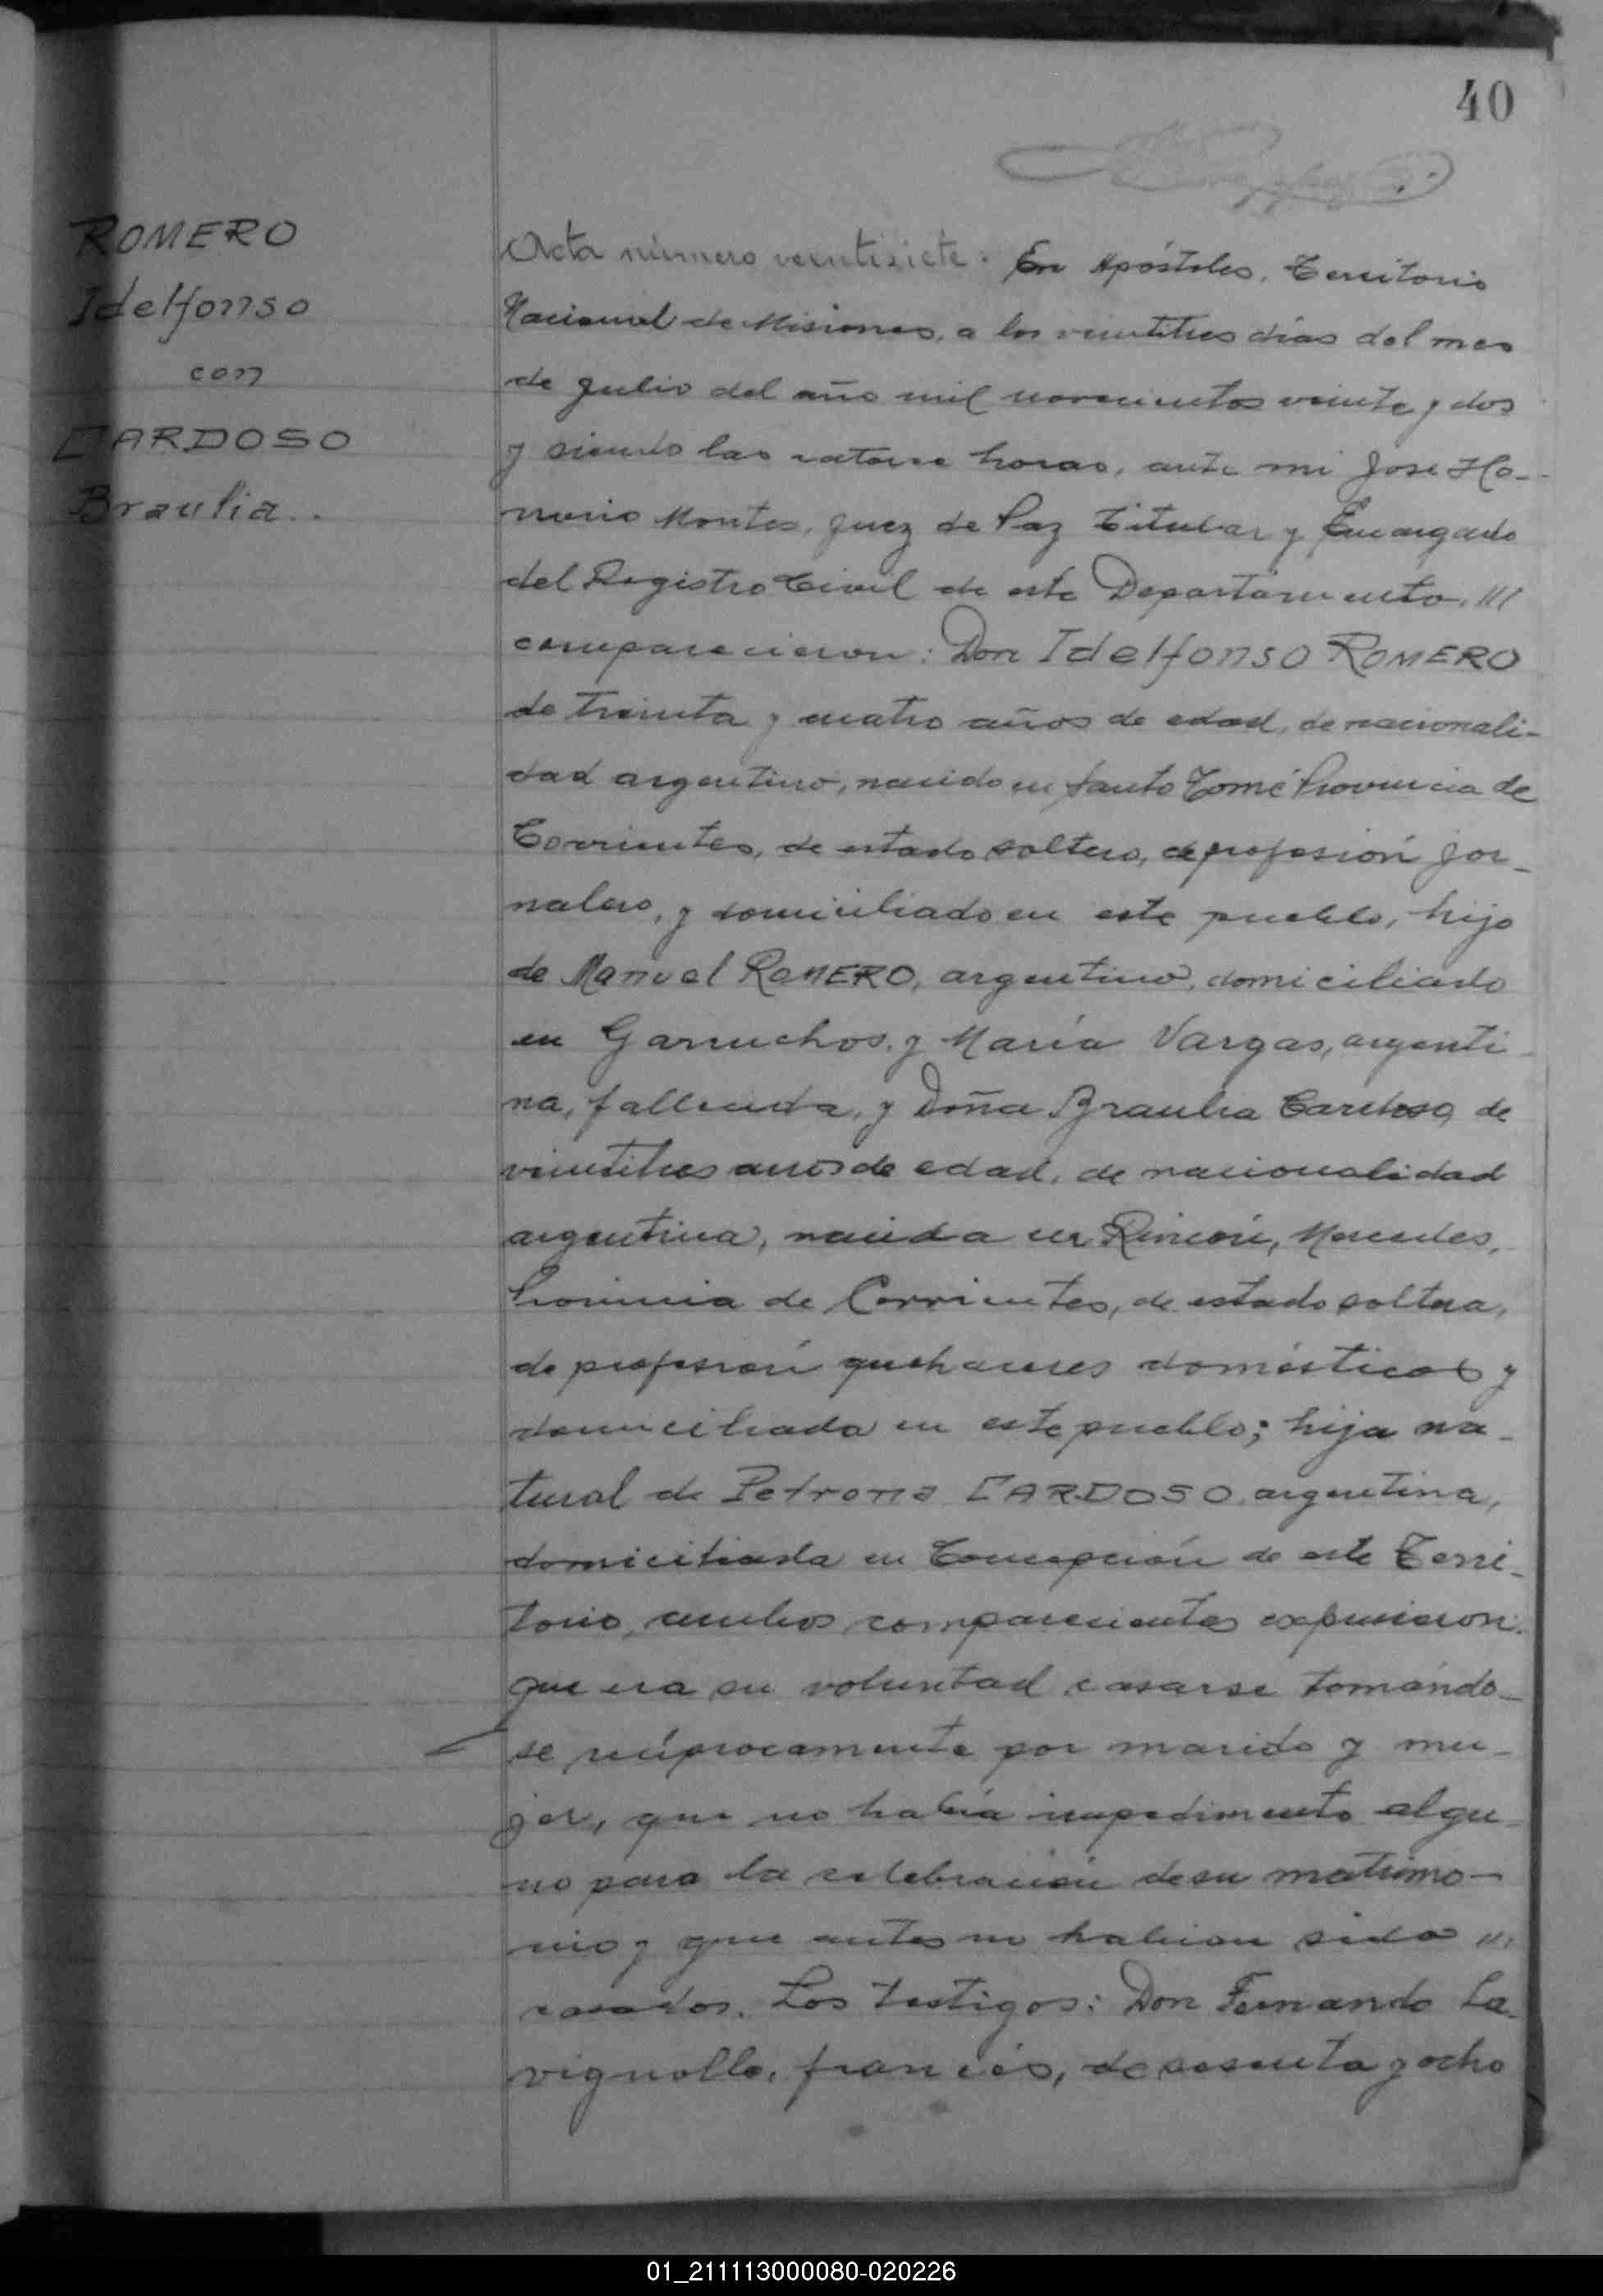 40
ROMERO
Idelfonso
con
CARDOSO
Braulia..
Acta número veintisiete: En Apóstoles, Territorio
Nacional de Misiones, a los veintitres dias del mes
de Julio del año mil novecientos veinte y dos
y siendo las catorce horas, ante mi José Ho-
norio Montes, Juez de Paz Titular y Encargado
del Registro Civil de este Departamento, ///
comparecieron: Don Idelfonso ROMERO
de treinta y cuatro años de edad, de nacionali-
dad argentino, nacido en Santo Tomé Provincia de
Corrientes, de estado soltero, de profesión jor-
nalero, y domiciliado en este pueblo, hijo
de Manuel ROMERO, argentino, domiciliado
en Garruchos, y María Vargas, argenti-
na, fallecida, y Doña Braulia Cardoso, de
veintitres años de edad, de nacionalidad
argentina, nacida en Rincón, Mercedes,
Provincia de Corrientes, de estado soltera,
de profesión quehaceres domésticos y
domiciliada en este pueblo; hija na-
tural de Petrona CARDOSO, argentina,
domiciliada en Concepción de este Terri-
torio, ambos comparecientes expusieron:
que era su voluntad casarse tomándo-
se recíprocamente por marido y mu-
jer, que no había impedimento algu-
no para la celebración de su matrimo-
nio y que antes no habian sido ///
casados. Los testigos: Don Fernando La-
vignolle, francés, de sesenta y ocho
01_211113000080-020226